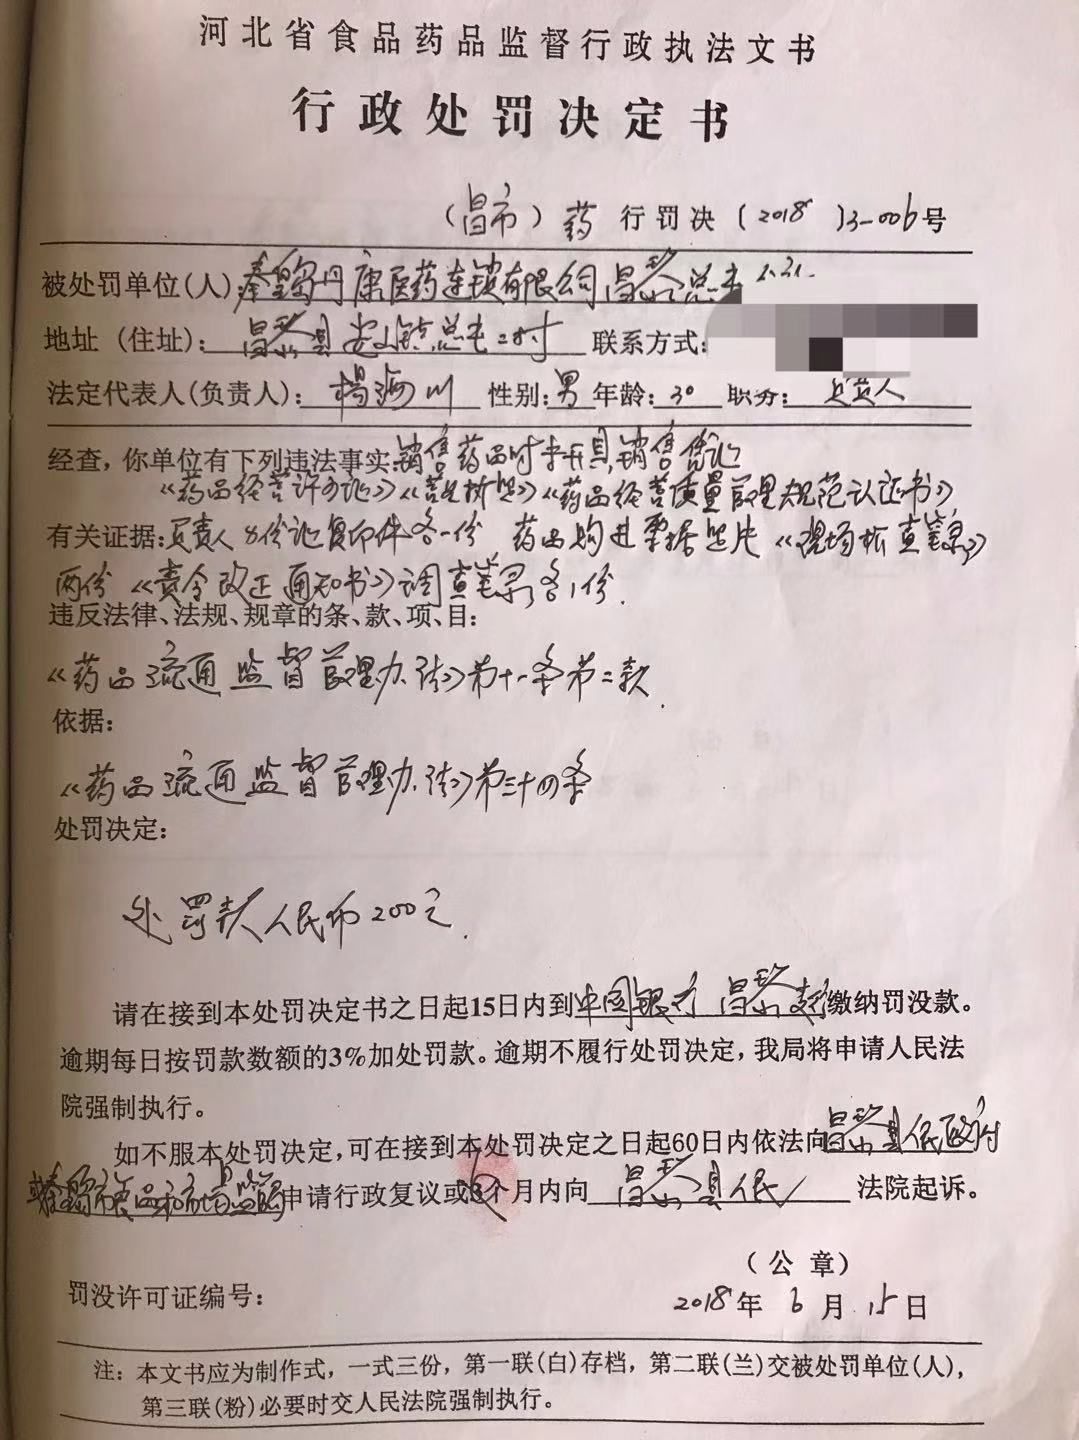 河北省食品药品监督行政执法文书
行政处罚决定书
（昌市）药 行罚决〔2018〕3-006号
被处罚单位(人):秦皇岛丹康医药连锁有限公司昌黎总屯
地址（住址):昌黎县安山镇总屯二村 联系方式:
法定代表人(负责人):杨海川 性别:男 年龄:30 职务:负责人
经查，你单位有下列违法事实:销售药品时未开具销售凭证
《药品经营许可证》《营业执照》《药品经营质量管理规范认证书》
有关证据:负责人身份证复印件各一份 药品购进票据照片《现场检查笔录》
两份《责令改正通知书》调查笔录各1份.
违反法律、法规、规章的条、款、项、目:
《药品流通监督管理办法》第十一条第二款.
依据:
《药品流通监督管理办法》第三十四条
处罚决定:
处罚款人民币200元.
请在接到本处罚决定书之日起15日内到中国银行昌黎支行缴纳罚没款。
逾期每日按罚款数额的3%加处罚款。逾期不履行处罚决定，我局将申请人民法
院强制执行。
如不服本处罚决定，可在接到本处罚决定之日起60日内依法向昌黎县人民政府
或秦皇岛市食品和市场监管局申请行政复议或 个月内向 昌黎县人民 法院起诉。
（公章）
罚没许可证编号:
2018年6月15日
注: 本文书应为制作式，一式三份，第一联(白)存档，第二联(兰)交被处罚单位(人)，
第三联(粉)必要时交人民法院强制执行。